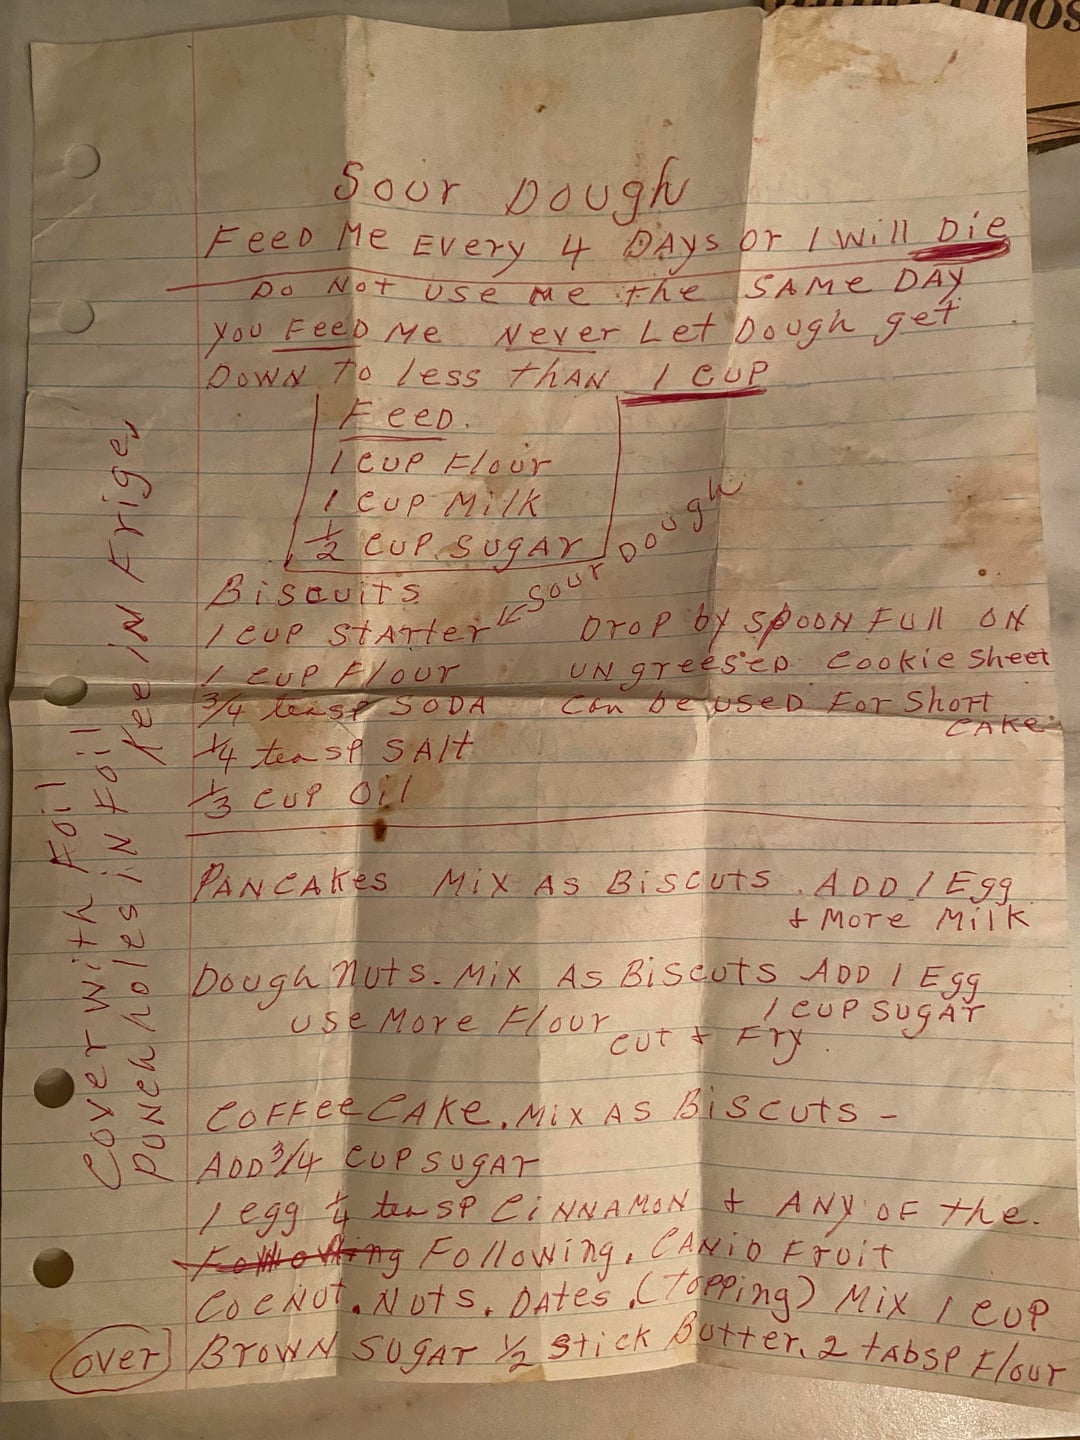 Sour Dough
Feed Me Every 4 Days or I Will Die
Do Not use me the SAME DAY
you Feed Me Never Let Dough get
Down to less than 1 cup
Feed.
1 cup Flour
1 cup Milk
1/2 cup sugar
Biscuits
1 cup starter ← Sour Dough
1 cup Flour
3/4 teasp SODA
1/4 teasp SAlt
1/3 cup Oil
Drop by spoon Full ON
un greesed Cookie Sheet
Can be used For Short
CAKe
PANCAKes Mix As Biscuts. ADD 1 Egg
+ More Milk
Dough Nuts. Mix As Biscuts ADD 1 Egg
1 cup sugar
use More Flour
cut + Fry.
Coffee CAKe. Mix As Biscuts -
ADD 3/4 cup sugar
1 egg 1/4 teasp CiNNAMON + ANy OF the.
Following. CANiD Fruit
CocNut. Nuts. Dates. (topping) Mix 1 cup
Brown sugar 1/2 stick Butter. 2 tAbsp Flour
over
Cover with Foil
punch holes in Foil
Keep in Frige,